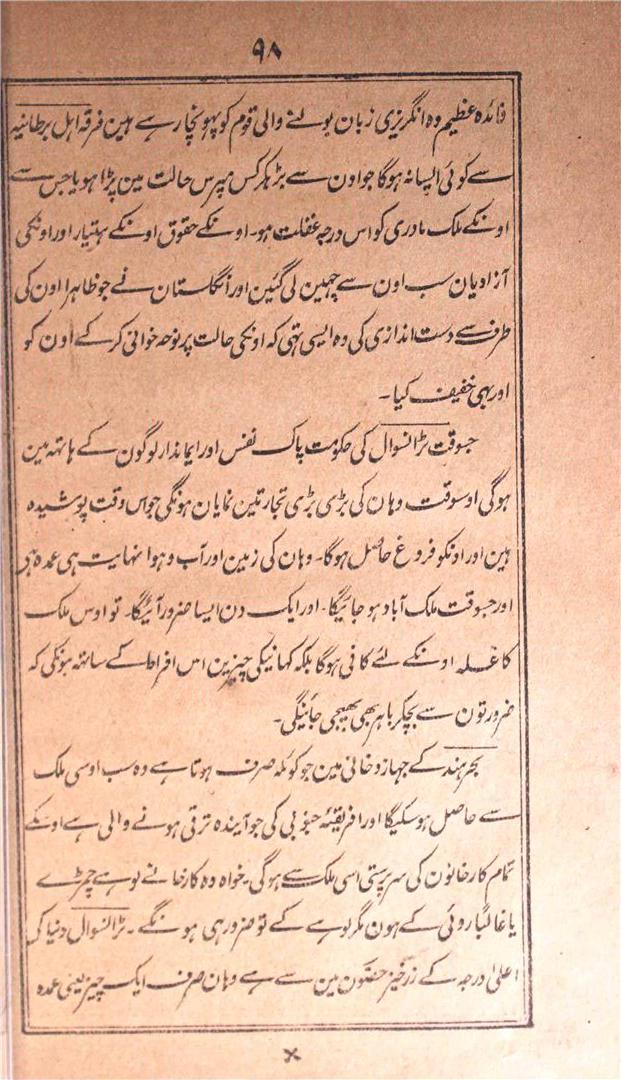 ۹۸
فائدہ عظیم وہ انگریزی زبان بولنے والی قوم کو پہونچا رہے ہین فرقہ اہل برطانیہ
سے کوئی ایسا نہ ہوگا جو اون سے بڑہکر کس مپرس حالت مین پڑا ہو یا جس سے
اونکے ملک مادری کو اس درجہ غفلت ہو۔ اونکے حقوق اونکے ہتیار اور اونکی
آزادیان سب اون سے چہین لی گئین اور انگلستان نے جو ظاہرا اون کی
طرف سے دست اندازی کی وہ ایسی تہی کہ اونکی حالت پر نوحہ خوانی کرکے اون کو
اور بہی خفیف کیا۔
جسوقت ٹرانسوال کی حکومت پاک نفس اور ایماندار لوگون کے ہاتہہ مین
ہوگی اوسوقت وہان کی بڑی بڑی تجارتین نمایان ہونگی جو اس وقت پوشیدہ
ہین اور اونکو فروغ حاصل ہوگا۔ وہان کی زمین اور آب و ہوا نہایت ہی عمدہ ہی
اور جسوقت ملک آباد ہو جائیگا۔ اور ایک دن ایسا ضرور آئیگا۔ تو اوس ملک
کا غلہ اونکے لئے کافی ہوگا بلکہ کہانیکی چیزین اس افراط کے ساتہہ ہونگی کہ
ضرورتون سے بچکر باہر بھی بھیجی جائینگی۔
بحر ہند کے جہاز دخانی مین جو کوئلہ صرف ہوتا ہے وہ سب اوسی ملک
سے حاصل ہو سکیگا اور افریقئہ جنوبی کی جو آیندہ ترقی ہونے والی ہے اوسکے
تمام کارخانون کی سرپرستی اسی ملک سے ہوگی۔ خواہ وہ کارخانے لوہے چمڑے
یا غالباً روئی کے ہون مگر لوہے کے تو ضرور ہی ہونگے۔ ٹرانسوال دنیا کے
اعلیٰ درجہ کے زرخیز حصّون مین سے ہے وہان صرف ایک چیز یعنی عمدہ